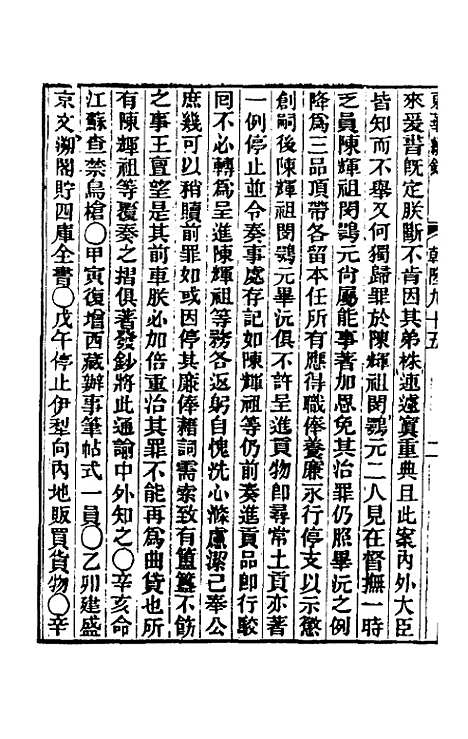 來爰書旣定朕斷不肯因其弟株連遽寘重典且此案內外大臣
皆知而不舉又何獨歸罪於陳輝祖閔鶚元二人見在督撫一時
乏員陳輝祖閔鶚元尙屬能事著加恩免其治罪仍照畢沅之例
降爲三品頂帶各留本任所有應得職俸養廉永行停支以示懲
創嗣後陳輝祖閔鶚元畢沅俱不許呈進貢物卽尋常土貢亦著
一例停止並令奏事處存記如陳輝祖等仍前奏進貢品卽行駁
囘不必轉爲呈進陳輝祖等務各返躬自愧洗心滌慮潔己奉公
庶幾可以稍贖前罪如或因停其廉俸藉詞需索致有簠簋不飭
之事王亶望是其前車朕必加倍重治其罪不能再爲曲貸也所
有陳輝祖等覆奏之摺俱著發鈔將此通諭中外知之○辛亥命
江蘇查禁鳥槍○甲寅復增西藏辦事筆帖式一員○乙卯建盛
京文溯閣貯四庫全書○戊午停止伊犁向內地販買貨物○辛